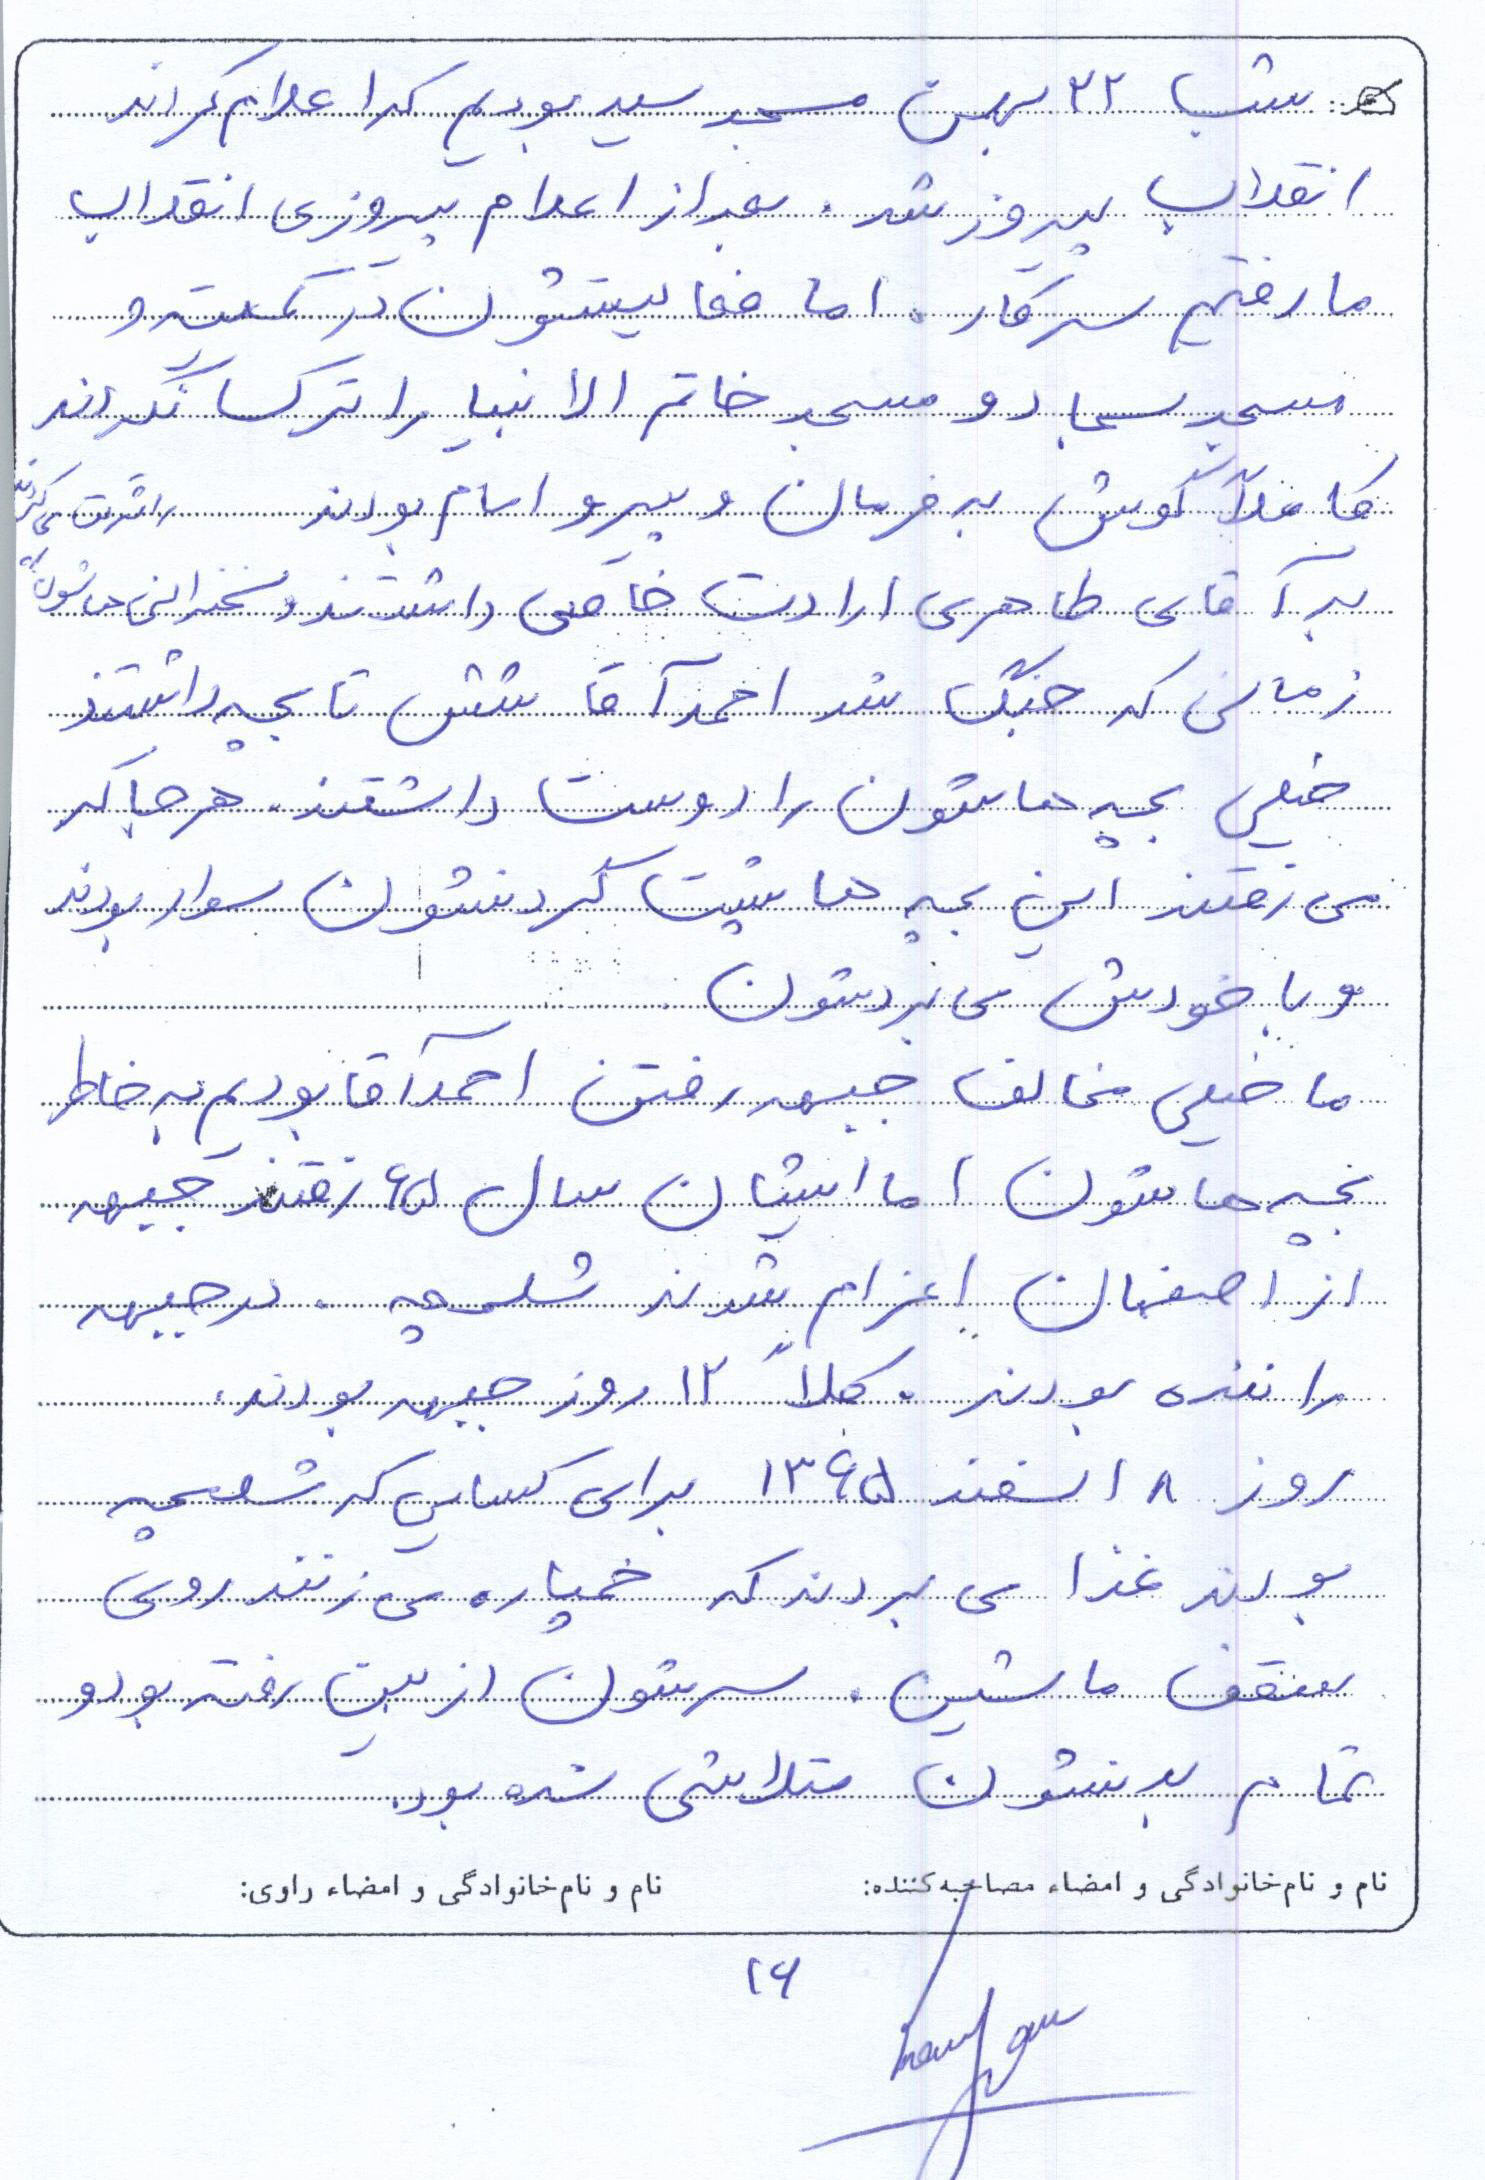 شب ۲۲ بهمن مسجد سید بودیم که اعلام کردند
انقلاب پیروز شد. بعد از اعلام پیروزی انقلاب
ما رفتیم سر کار. اما فعالیتشون در کمیته و
مسجد سجاد و مسجد خاتم الانبیا را ترک نکردند
کاملاً گوش به فرمان و پیرو امام بودند
به آقای طاهری ارادت خاصی داشتند و سخنرانی هاشون را شرکت می کردند
زمانی که جنگ شد احمد آقا شش تا بچه داشتند
خیلی بچه هاشون را دوست داشتند. هر جا که
می رفتند این بچه ها پشت گردنشون سوار بودند
و با خودش می بردشون
ما خیلی مخالف جبهه رفتن احمد آقا بودیم به خاطر
بچه هاشون اما ایشان سال ۶۵ رفتند جبهه
از اصفهان اعزام شدند شلمچه. در جبهه
راننده بودند. کلاً ۱۲ روز جبهه بودند.
روز ۸ اسفند ۱۳۶۵ برای کسایی که شلمچه
بودند غذا می بردند که خمپاره می زنند روی
سقف ماشین. سرشون از بین رفته بود و
تمام بدنشون متلاشی شده بود.
نام و نام‌خانوادگی و امضاء مصاحبه‌کننده: نام و نام‌خانوادگی و امضاء راوی:
۱۶